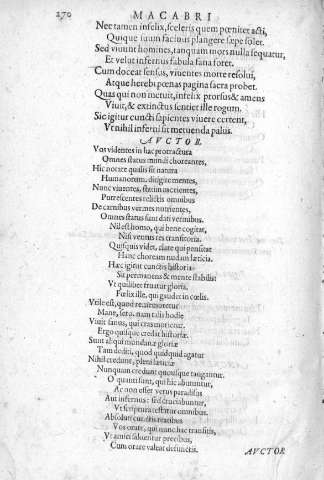 270 MACABRI
Nec tamen infelix, sceleris quem pœnitet acti,
Quique suum facinus plangere sæpe solet.
Sed viuunt homines, tanquam mors nulla sequatur,
Et velut infernus fabula fana foret.
Cum doceat sensus, viuentes morte resolui,
Atque herebi pœnas pagina sacra probet.
Quas qui non metuit, infelix prorsus & amens
Viuit, & extinctus sentiet ille rogum.
Sic igitur cuncti sapientes viuere certent,
Vt nihil inferni sit metuenda palus.
AVCTOR
Vos videntes in hac protractura
Omnes status mundi choreantes,
Hic notate qualis sit natura
Humanorum, dirigite mentes,
Nunc viuentes, statim morientes,
Putrescentes relictis omnibus
De carnibus vermes nutrientes,
Omnes status sunt dati vermibus.
Nil est homo, qui bene cogitat,
Nisi ventus res transitoria.
Quisquis videt, clare qui pensitat
Hanc choream nudans læticia.
Hæc igitur cunctis historia
Sit permanens & mente stabilis:
Vt quilibet fruatur gloria,
Fœlix ille, qui gaudet in cœlis.
Vtile est, quod rememoretur
Mane, sero, nam talis hodie
Viuit sanus, qui cras morietur.
Ergo quisque credat historiæ.
Sunt aliqui mundanæ gloriæ
Tam dediti, quod quidquid agatur
Nihil credunt, pleni læticiæ
Nunquam credunt quousque tangantur.
O quanti sunt, qui hic abutuntur,
Ac non esset verus paradisus
Aut infernus: sed cruciabuntur,
Vt scriptura testatur omnibus.
Absoluti cunctis reatibus
Vos orate, qui nunc hac transitis,
Vt amici iuuentur precibus,
Cum orare valeat defunctis.
AVCTOR